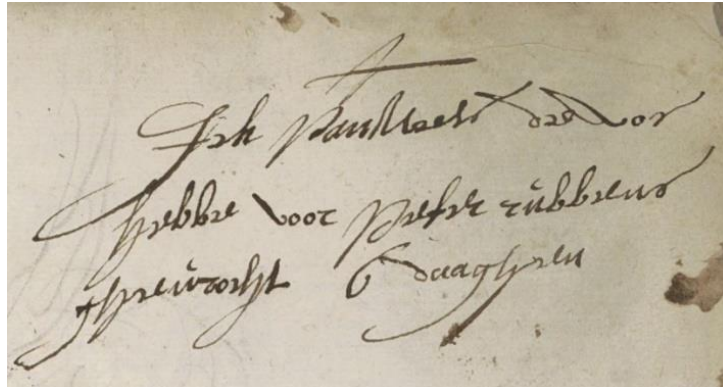 Ick Pauwels de Vos
hebbe voor Peeter rubbens
ghewrocht 6 daaghen